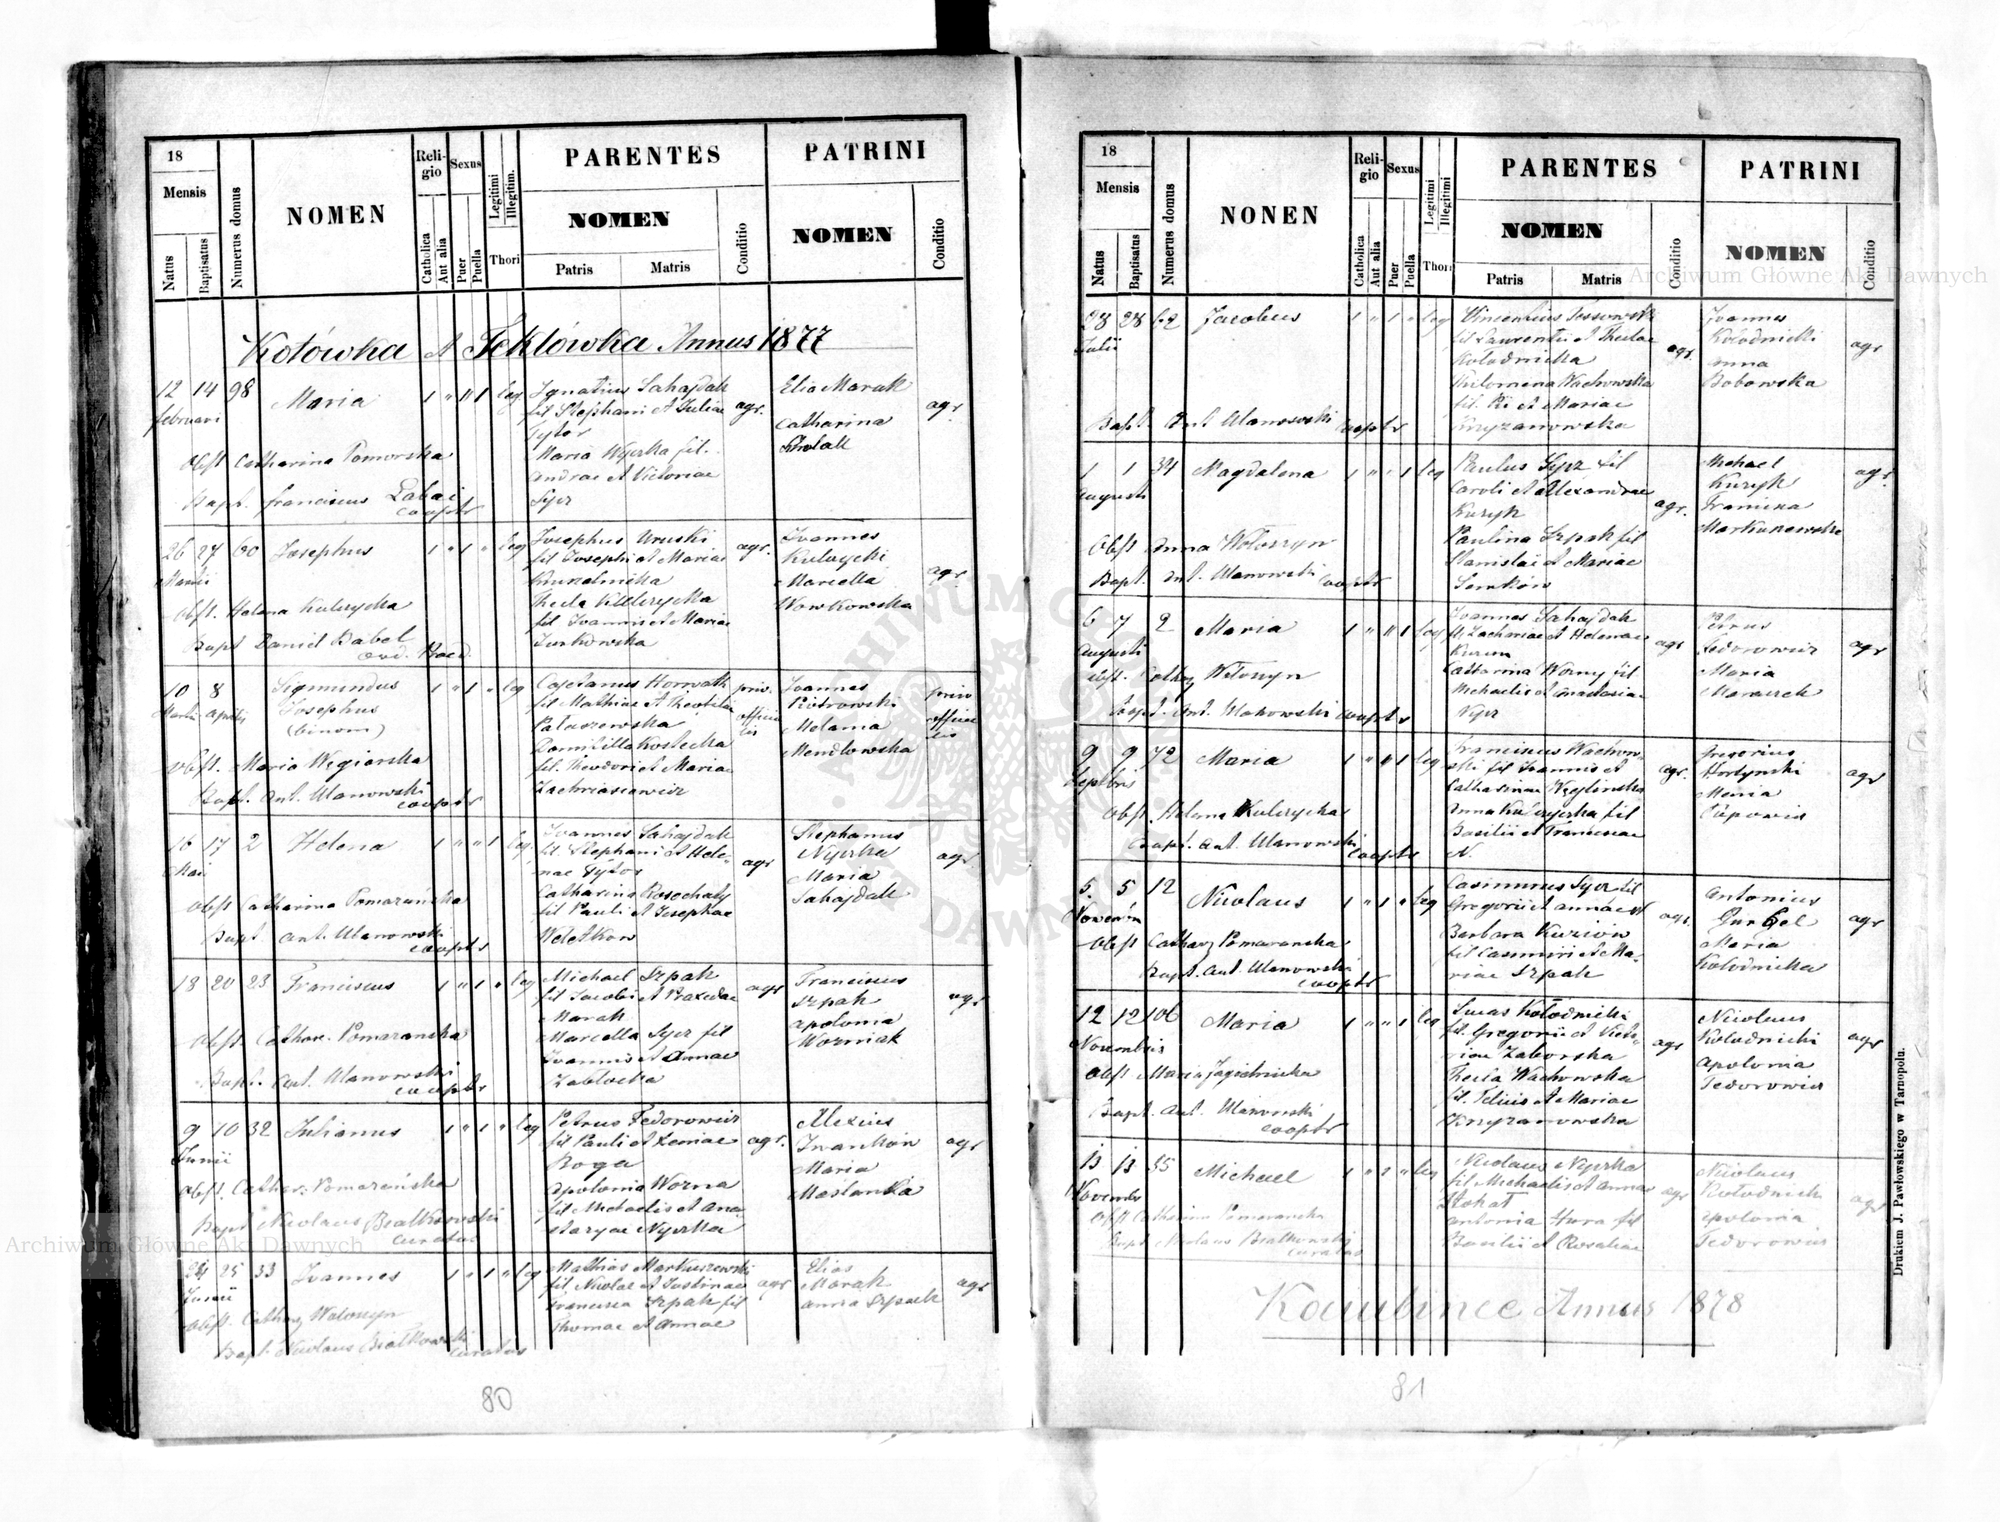 18
Mensis
Natus
Baptisatus
Numerus domus
NOMEN
Religio
Catholica
Aut alia
Sexus
Puer
Puella
Legitimi
Illegitim.
Thori
PARENTES
NOMEN
Patris
Matris
Conditio
PATRINI
NOMEN
Conditio
Kotówka et Teklówka Annus 1877
12 14 98 Maria 1 " " 1 leg
februari
Ignatius Sahajdak
fil Stephani et Juliae
Tytor
Maria Nyczka fil.
Andrae et Victoriae
Sycz
agr.
Elia Marak
Catharina
agr
Obst Catharina Pomorska
Bapt. franciscus Labai
cooptr
26 27 60 Josephus 1 " 1 " leg
Martii
Josephus Uruski
fil Josephi et Mariae
Thecla Kulczycka
fil Joannis et Mariae
Turkowska
agr.
Joannes
Kulczycki
Marcella
Wowkowska
agr
Obst. Helena Kulczycka
Bapt Daniel Babel
10 8 Sigmundus 1 " 1 " leg
Martii aprilis Josephus
(binom)
Cajetanus Horvath
fil Mathiae et Theofilae
Pataszewska
Domitilla Kostecka
fil. Theodori et Mariae
Zachriasiewicz
priv.
officia
lis
Joannes
Piotrowski
Melania
Mendlowska
priv
officia
lis
Obst. Maria Węgiarska
Bapt. Ant. Ulanowski
cooptr
16 17 2 Helena 1 " " 1 leg
Mai
Joannes Sahajdak
fil Stephani et Hele-
nae Tytor
Catharina Rosochaty
fil Pauli et Josephae
agr
Stephanus
Nyczka
Maria
Sahajdak
agr
Obst Catharina Pomarańska
Bapt Ant. Ulanowski
cooptr
18 20 23 Franciscus 1 " 1 " leg
Michael Szpak
fil Jacobi et Praxedae
Marak
Marcella Sycz fil
Joannis et Annae
Zabłocka
agr
Franciscus
Szpak
Apolonia
Woźniak
agr
Obst. Cathar. Pomarańska
Bapt. Ant. Ulanowski
cooptr
9 10 32 Julianus 1 " 1 " leg
Junii
Petrus Fedorowicz
fil Pauli et Xeniae
Roga
Apolonia Worna
fil Michaelis et Ana-
staryae Nyczka
agr.
Alexius
Iwanków
Maria
Maslanka
agr
Obst. Cathar. Pomarańska
Bapt Nicolaus Białkowski
curatus
24 25 33 Joannes 1 " 1 " leg
Junii
Mathias Markuszewski
fil. Nicolai et Justinae
Francisca Szpak fil
Thomae et Annae
agr
Elias
Marak
Anna Szpack
agr
Obst. Cathar Wołoszyn
Bapt. Nicolaus Białkowski
curatus
80
18
Mensis
Natus
Baptisatus
Numerus domus
NONEN
Religio
Catholica
Aut alia
Sexus
Puer
Puella
Legitimi
Illegitimi
Thori
PARENTES
NOMEN
Patris
Matris
Conditio
PATRINI
NOMEN
Conditio
28 28 62 Jacobus 1 " 1 " leg
Julii
Vincentius Sossowski
fil Laurentii et Theclae
Kołodnicka
Philomena Wachowska
fil. Pii et Mariae
Krzyzanowska
agr.
Joannes
Kołodnicki
Anna
Bobowska
agr
Bapt. Ant Ulanowski cooptr
1 1 34 Magdalena 1 " " 1 leg
Augusti
Paulus Sycz fil
Caroli et Alexandrae
Kuzyk
Paulina Szpak fil
Stanislai et Mariae
Senków
agr.
Michael
Kuzyk
Francisca
Markuszewska
agr.
Obst Anna Wołoszyn
Bapt. Ant. Ulanowski cooptr
6 7 2 Maria 1 " " 1 leg
Augusti
Joannes Sahajdak
fil Zachariae et Helenae
Catharina Worny fil
Michaelis et Anastasiae
agr
Petrus
Fedorowicz
Maria
agr
Obst. Cathar Wołoszyn
Bapt. Ant. Ulanowski cooptr
9 9 72 Maria 1 " " 1 leg
Septbris
Franciscus Wachow-
ski fil Joannis et
Catharinae Węglinska
Anna Kulczycka fil
Basilii et Franciscae
N.
agr.
Gregorius
Hortynski
Maria
agr
Obst. Helena Kulczycka
Bapt. Ant. Ulanowski
cooptr
5 5 12 Nicolaus 1 " 1 " leg
Novembr
Casimirus Sycz fil
Gregorii et Annae N
Barbara Kuzków
fil Casimiri et Ma-
riae Szpak
agr.
Antonius
Maria
Kołodnicka
agr
Obst Cathar Pomaranska
Bapt. Ant. Ulanowski
cooptr
12 12 106 Maria 1 " " 1 leg
Novembris
Lucas Kołodnicki
fil. Gregorii et Victo-
riae Zaborska
Thecla Wachowska
fil. Felicis et Mariae
Krzyzanowska
agr
Nicolaus
Kołodnicki
Apolonia
Fedorowicz
agr
Obst Maria Jagielnicka
Bapt. Ant. Ulanowski
cooptr
13 13 55 Michael 1 " 1 " leg
Novembr
Nicolaus Nyczka
fil Michaelis et Annae
Stokat
Antonia Hura fil
Basilii et Rosaliae
agr
Nicolaus
Kołodnicki
Apolonia
Fedorowicz
agr
Obst Catharina Pomaranska
Bapt Nicolaus Białkowski
curatus
Kawbince Annus 1878
81
Drukiem J. Pawłowskiego w Tarnopolu.
Archiwum Główne Akt Dawnych
Archiwum Główne Akt Dawnych
ARCHIWUM GŁÓWNE AKT DAWNYCH